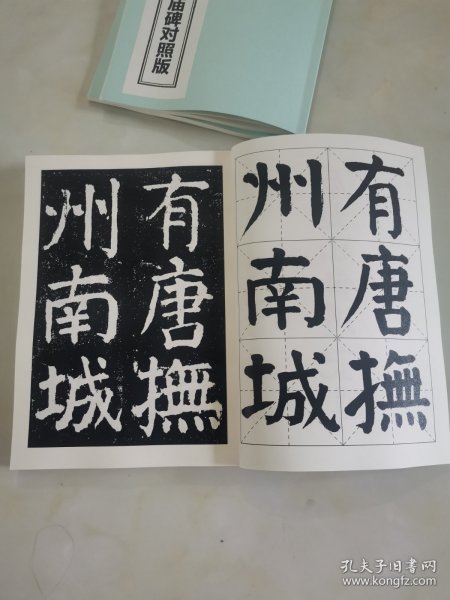 庙碑对照版
有唐撫
州南城
有唐撫
州南城
孔夫子旧书网
www.kongfz.com